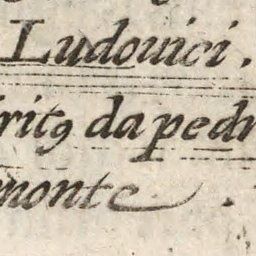 Ludouici.
ritꝯ da pedr
monte.